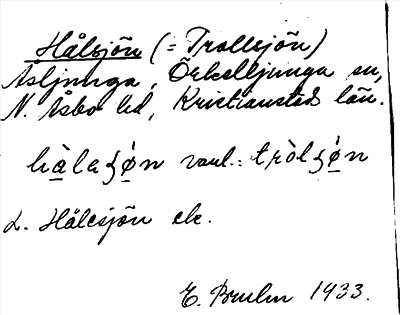 Hålsjön (= Trollsjön)
Åsljunga, Örkelljunga sn,
N. Åsbo hd, Kristianstads län.
hàlaʒø̀n vanl.: tròlʒø̀n
L. Hålesjön ek.
E. Bruhn 1933.